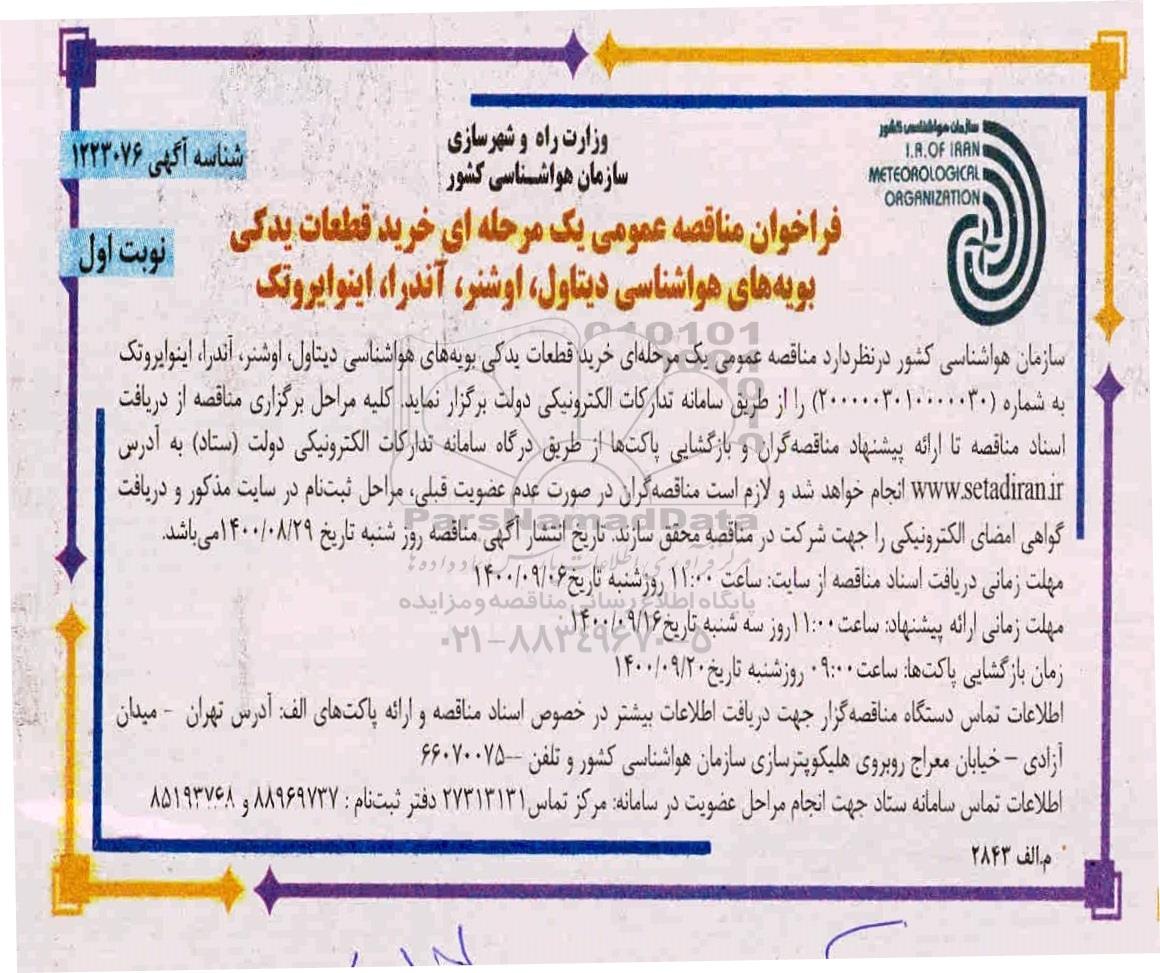 سازمان هواشناسی کشور
I.R.OF IRAN
METEOROLOGICAL
ORGANIZATION
وزارت راه و شهرسازی
سازمان هواشناسی کشور
شناسه آگهی ۱۲۲۳۰۷۶
نوبت اول
فراخوان مناقصه عمومی یک مرحله ای خرید قطعات یدکی
بویه‌های هواشناسی دیتاول، اوشنر، آندرا، اینوایروتک
سازمان هواشناسی کشور درنظردارد مناقصه عمومی یک مرحله‌ای خرید قطعات یدکی بویه‌های هواشناسی دیتاول، اوشنر، آندرا، اینوایروتک
به شماره (۲۰۰۰۰۰۳۰۱۰۰۰۰۰۳۰) را از طریق سامانه تدارکات الکترونیکی دولت برگزار نماید. کلیه مراحل برگزاری مناقصه از دریافت
اسناد مناقصه تا ارائه پیشنهاد مناقصه‌گران و بازگشایی پاکت‌ها از طریق درگاه سامانه تدارکات الکترونیکی دولت (ستاد) به آدرس
www.setadiran.ir انجام خواهد شد و لازم است مناقصه‌گران در صورت عدم عضویت قبلی، مراحل ثبت‌نام در سایت مذکور و دریافت
گواهی امضای الکترونیکی را جهت شرکت در مناقصه محقق سازند. تاریخ انتشار آگهی مناقصه روز شنبه تاریخ ۱۴۰۰/۰۸/۲۹می‌باشد.
مهلت زمانی دریافت اسناد مناقصه از سایت: ساعت ۱۱:۰۰ روزشنبه تاریخ۱۴۰۰/۰۹/۰۶
مهلت زمانی ارائه پیشنهاد: ساعت۱۱:۰۰روز سه شنبه تاریخ۱۴۰۰/۰۹/۱۶
زمان بازگشایی پاکت‌ها: ساعت۰۹:۰۰ روزشنبه تاریخ۱۴۰۰/۰۹/۲۰
اطلاعات تماس دستگاه مناقصه‌گزار جهت دریافت اطلاعات بیشتر در خصوص اسناد مناقصه و ارائه پاکت‌های الف: آدرس تهران - میدان
آزادی – خیابان معراج روبروی هلیکوپترسازی سازمان هواشناسی کشور و تلفن –۶۶۰۷۰۰۷۵
اطلاعات تماس سامانه ستاد جهت انجام مراحل عضویت در سامانه: مرکز تماس۲۷۳۱۳۱۳۱ دفتر ثبت‌نام : ۸۸۹۶۹۷۳۷ و ۸۵۱۹۳۷۶۸
م.الف ۲۸۴۳
ParsNamadData
پایگاه اطلاع رسانی مناقصه و مزایده
۰۲۱-۸۸۳۴۹۶۷۰-۵